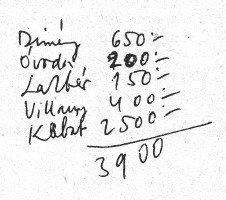 Dimény 650:-
Óvoda 200:-
Lakbér 150:-
Villany 400:-
Kabát 2500:-
3900